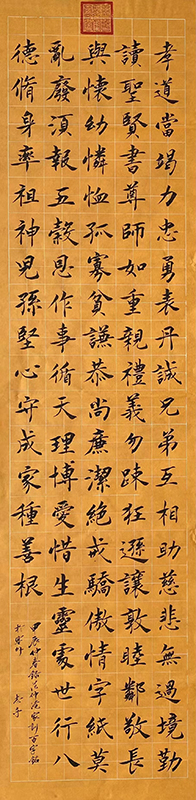 孝道當竭力忠勇表丹誠兄弟互相助慈悲無過境勤
讀聖賢書尊師如重親禮義勿踈狂遜讓敦睦鄰敬長
與懷幼憐恤孤寡貧謙恭尚廉潔絕戒驕傲情字紙莫
亂廢須報五穀恩作事循天理博愛惜生靈處世行八
德脩身率祖神兒孫堅心守成家種善根
甲辰仲春錄范仲淹家訓百字銘
於